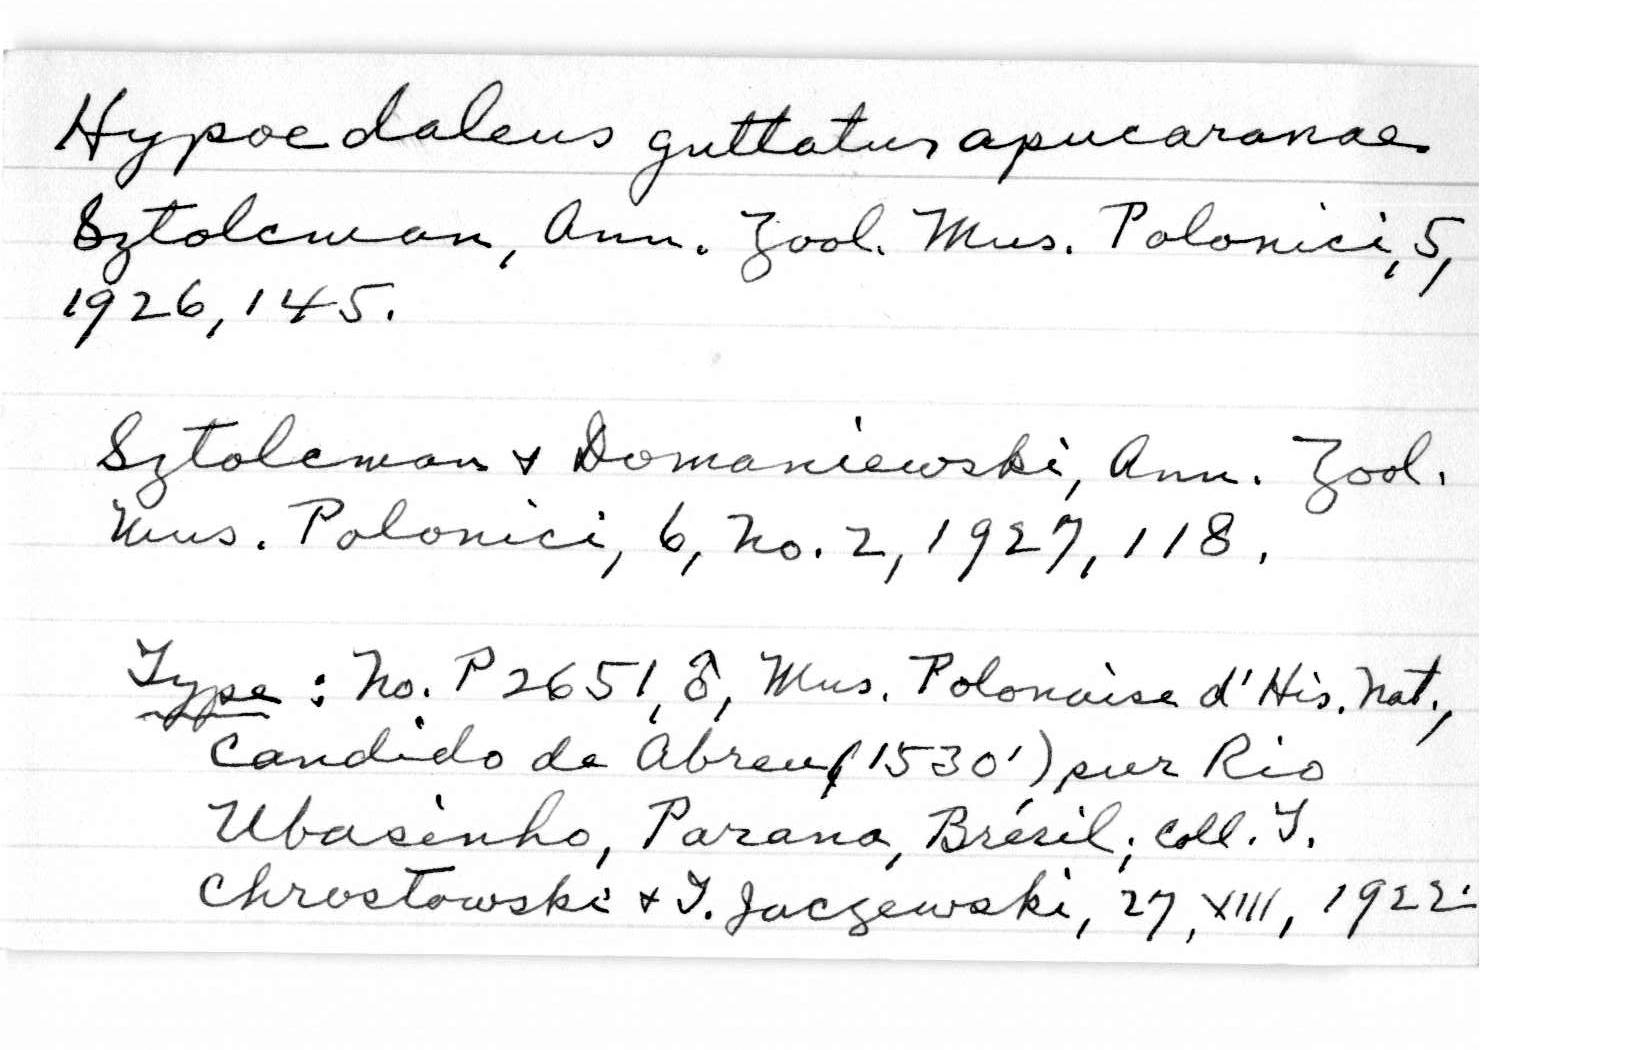 Hypoedaleus guttatus apucaranae
Sztolcman, Ann. Zool. Mus. Polonici, 5,
1926, 145.
Sztolcman & Domaniewski, Ann. Zool.
Mus. Polonici, 6, No. 2, 1927, 118.
Type: No. P 2651, ♂, Mus. Polonaise d' His. Nat.,
Candido de Abreu (1530') pur Rio
Ubasinho, Parana, Brésil; coll. T.
Chrostowski & T. Jaczewski, 27, XIII, 1922.